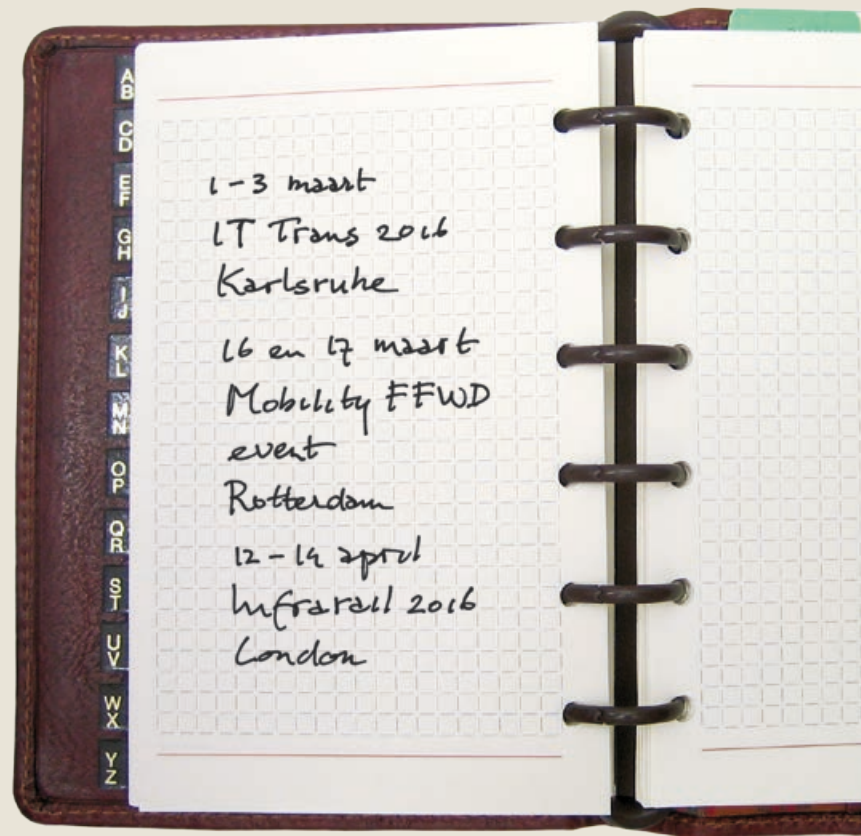 A
B
C
D
E
F
G
H
I
J
K
L
M
N
O
P
Q
R
S
T
U
V
W
X
Y
Z
1-3 maart
IT Trans 2016
Karlsruhe
16 en 17 maart
Mobility FFWD
event
Rotterdam
12-14 april
Infrarail 2016
London